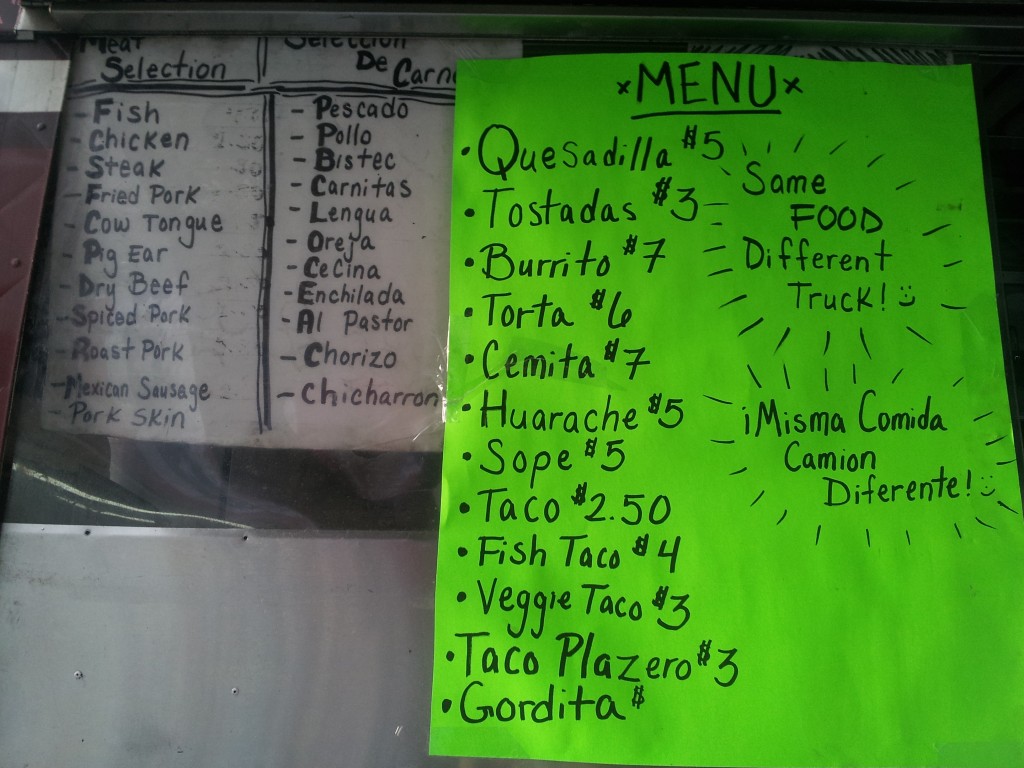 Meat
Selection
- Fish
- Chicken
- Steak
- Fried Pork
- Cow Tongue
- Pig Ear
- Dry Beef
- Spiced Pork
- Roast Pork
- Mexican Sausage
- Pork Skin
Selección
De Carne
- Pescado
- Pollo
- Bistec
- Carnitas
- Lengua
- Oreja
- Cecina
- Enchilada
- Al Pastor
- Chorizo
- Chicharron
x MENU x
• Quesadilla $5
• Tostadas $3
• Burrito $7
• Torta $6
• Cemita $7
• Huarache $5
• Sope $5
• Taco $2.50
• Fish Taco $4
• Veggie Taco $3
• Taco Plazero $3
• Gordita $
Same
FOOD
Different
Truck!
¡Misma Comida
Camion
Diferente!